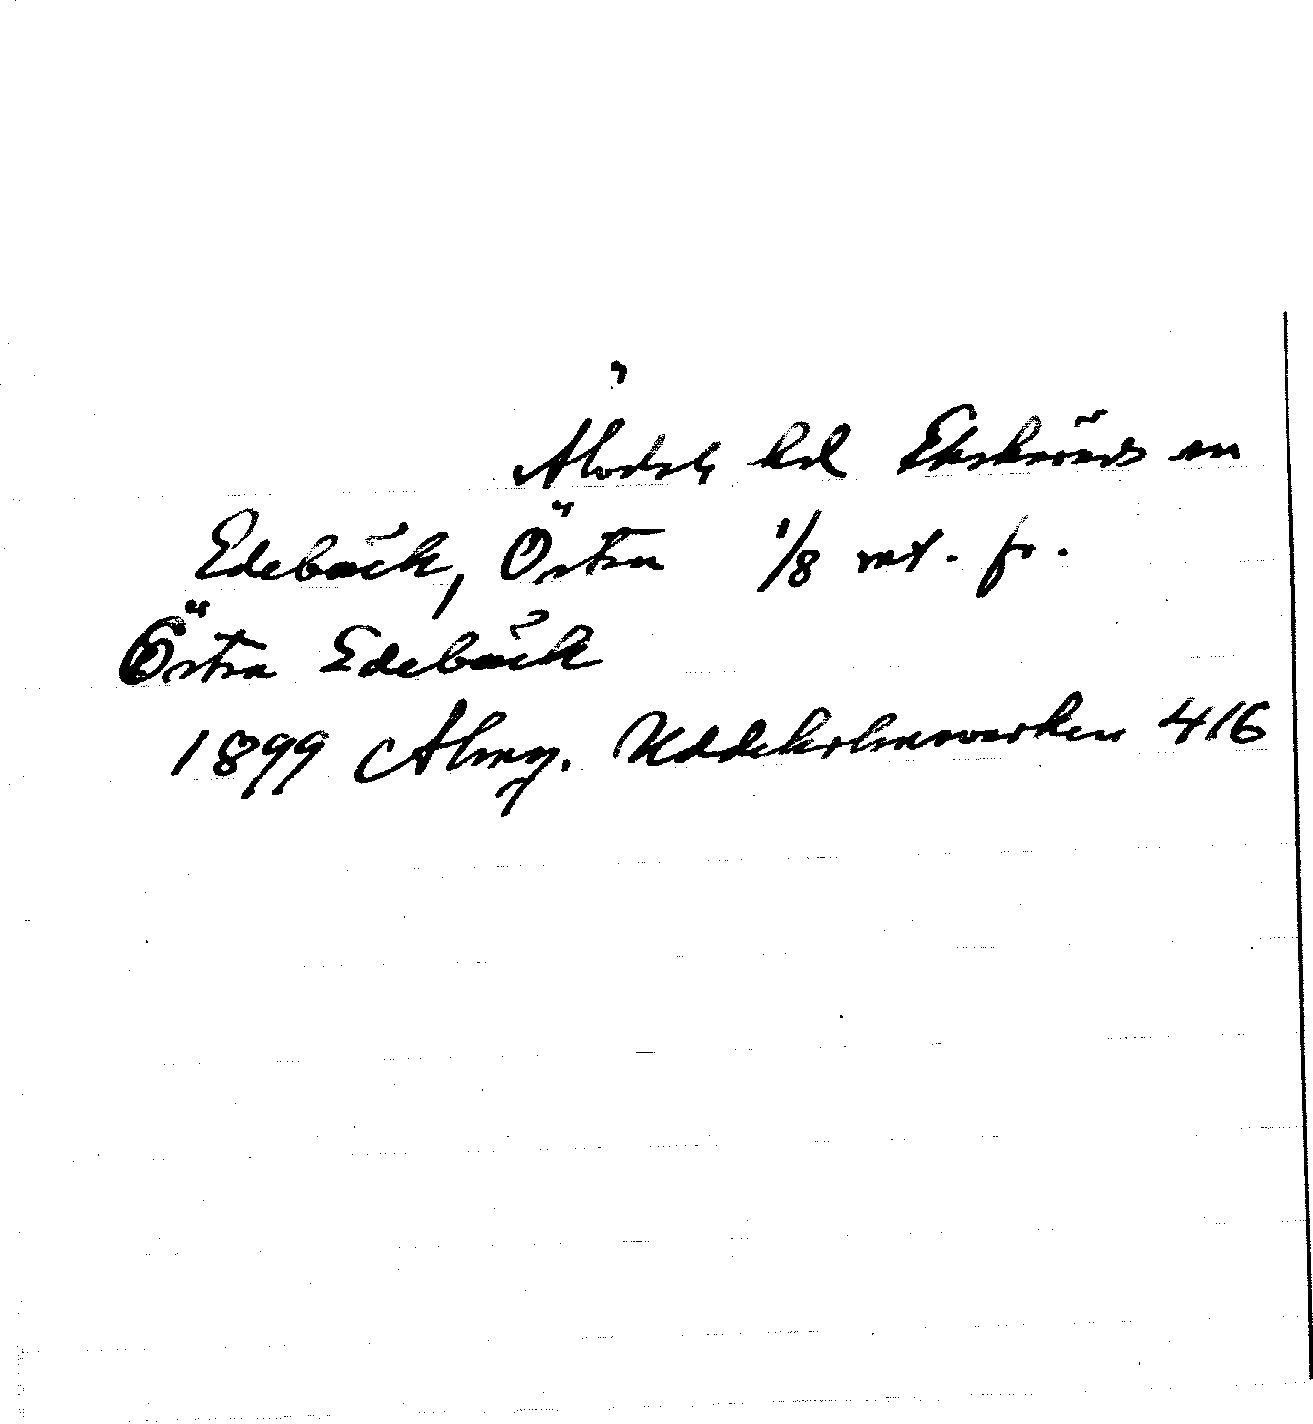 Älvdals hd Ekshärads sn
Edebäck, Östra 1/8 mt. fr.
Östra Edebäck
1899 Almq. Uddeholmsverken 416